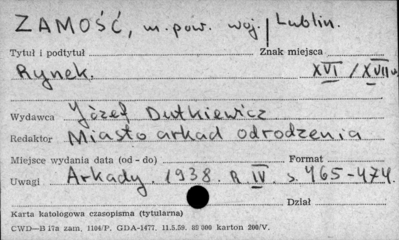 ZAMOŚĆ, m. pow. woj. / Lublin.
Tytuł i podtytuł Znak miejsca
Rynek. XVI / XVII w.
Wydawca Józef Dutkiewicz
Redaktor Miasto arkad odrodzenia
Miejsce wydania data (od - do) Format
Uwagi Arkady. 1938. R. IV. s. 465-474.
Dział
Karta katalogowa czasopisma (tytularna)
CWD—B 17a zam. 1104/P. GDA-1477. 11.5.59. 80 000 karton 200/V.